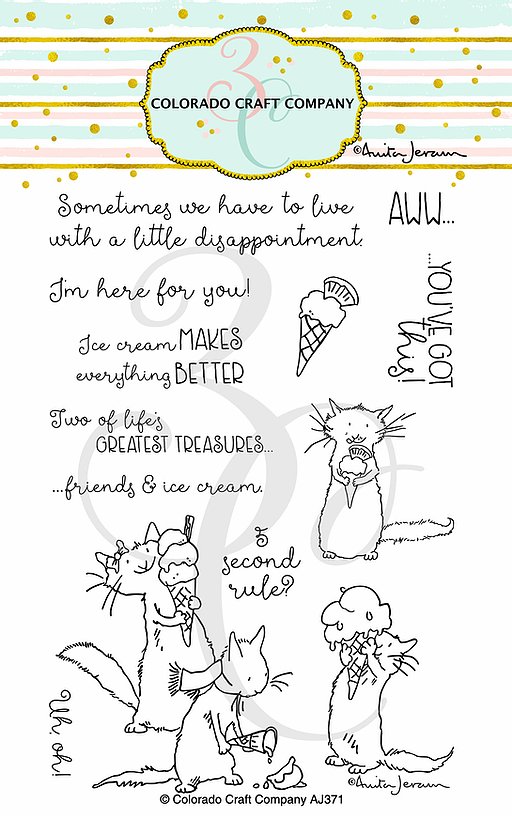 3C
COLORADO CRAFT COMPANY
©Anita Jeram
Sometimes we have to live
with a little disappointment.
AWW...
I'm here for you!
...YOU'VE GOT
this!
Ice cream MAKES
everything BETTER
Two of life's
GREATEST TREASURES...
...friends & ice cream.
5
second
rule?
Uh, oh!
©Anita Jeram
© Colorado Craft Company AJ371